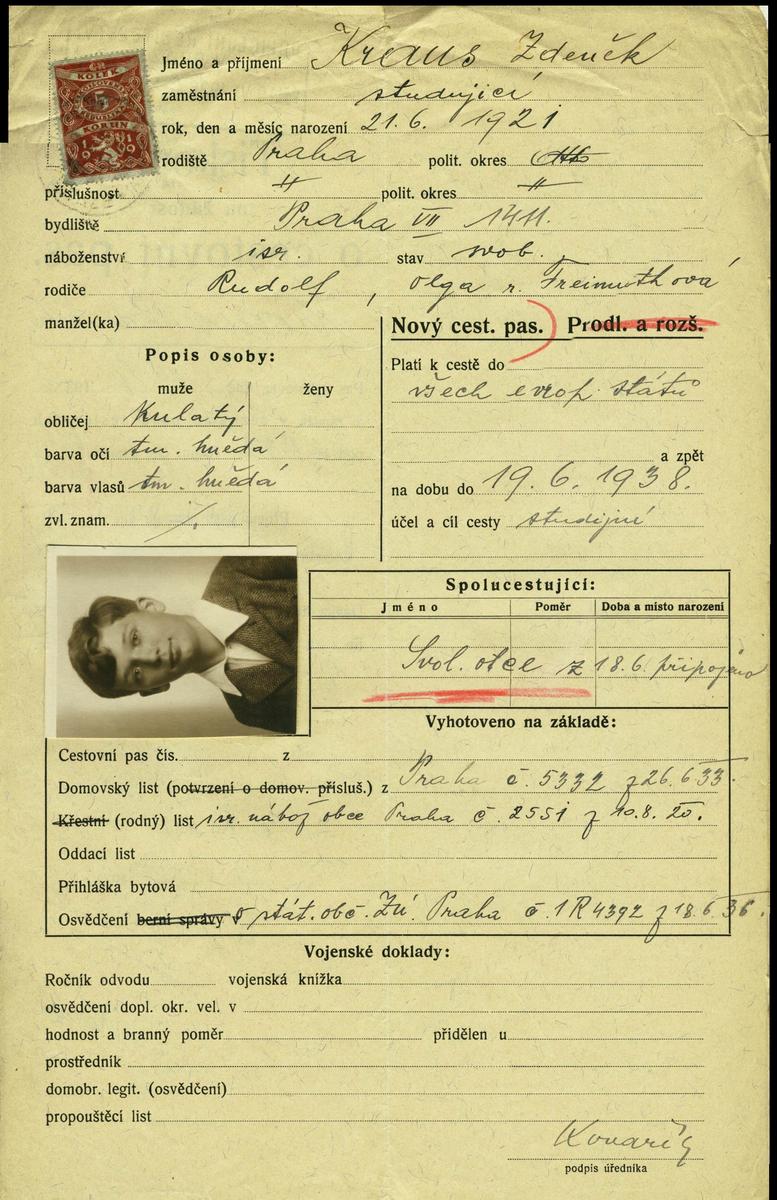 KOLEK
KORUN
1919
Jméno a příjmení Kraus Zdeněk
zaměstnání studující
rok, den a měsíc narození 21.6. 1921
rodiště Praha polit. okres
příslušnost —〃— polit. okres —〃—
bydliště Praha VII 1411.
náboženství isr. stav svob.
rodiče Rudolf, Olga r. Freimuthová
manžel(ka)
Nový cest. pas. Prodl. a rozš.
Popis osoby:
muže ženy
obličej Kulatý
barva očí tm. hnědá
barva vlasů tm. hnědá
zvl. znam. ./.
Platí k cestě do
všech evrop. států
a zpět
na dobu do 19.6.1938.
účel a cíl cesty studijní
Spolucestující:
Jméno Poměr Doba a místo narození
Svol. otce z 18.6. připojeno
Vyhotoveno na základě:
Cestovní pas čís. z
Domovský list (potvrzení o domov. přísluš.) z Praha č. 5332 z 26.6.33.
Křestní (rodný) list isr. nábož. obce Praha č. 2551 z 10.8.
Oddací list
Přihláška bytová
Osvědčení berní správy o stát. obč. Zú. Praha č. 1R4392 z 18.6.36.
Vojenské doklady:
Ročník odvodu vojenská knížka
osvědčení dopl. okr. vel. v
hodnost a branný poměr přidělen u
prostředník
domobr. legit. (osvědčení)
propouštěcí list
podpis úředníka